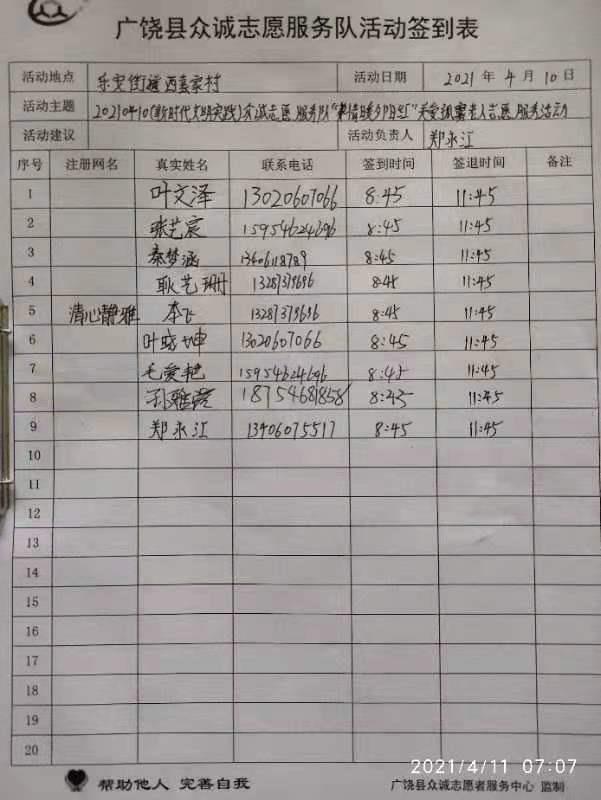 广饶县众诚志愿服务队活动签到表
活动地点 乐安街道西袁家村 活动日期 2021 年 4 月 10 日
活动主题 20210410(新时代文明实践)众诚志愿服务队"真情暖夕阳红"关爱孤寡老人志愿服务活动
活动建议 活动负责人 郑永江
序号 注册网名 真实姓名 联系电话 签到时间 签退时间 备注
1 叶文泽 13020607066 8:45 11:45
2 张艺宸 15954624696 8:45 11:45
3 秦梦涵 13406118789 8:45 11:45
4 耿艺珊 13287379696 8:45 11:45
5 清心静雅 李飞 13287379696 8:45 11:45
6 叶晓坤 13020607066 8:45 11:45
7 毛爱艳 15954624696 8:45 11:45
8 孙雅萱 18754681858 8:45 11:45
9 郑永江 13406075517 8:45 11:45
10
11
12
13
14
15
16
17
18
19
20
2021/4/11 07:07
帮助他人 完善自我 广饶县众诚志愿者服务中心 监制